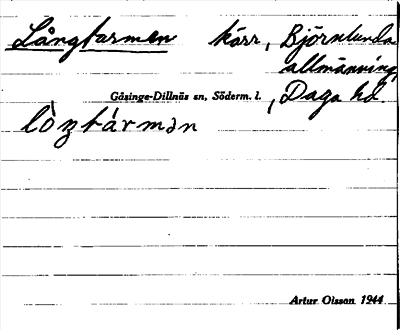 Långtarmen kärr, Björnlunda
allmänning,
Gåsinge-Dillnäs sn, Söderm. l. , Daga hd.
lòŋtármən
Artur Olsson 1944